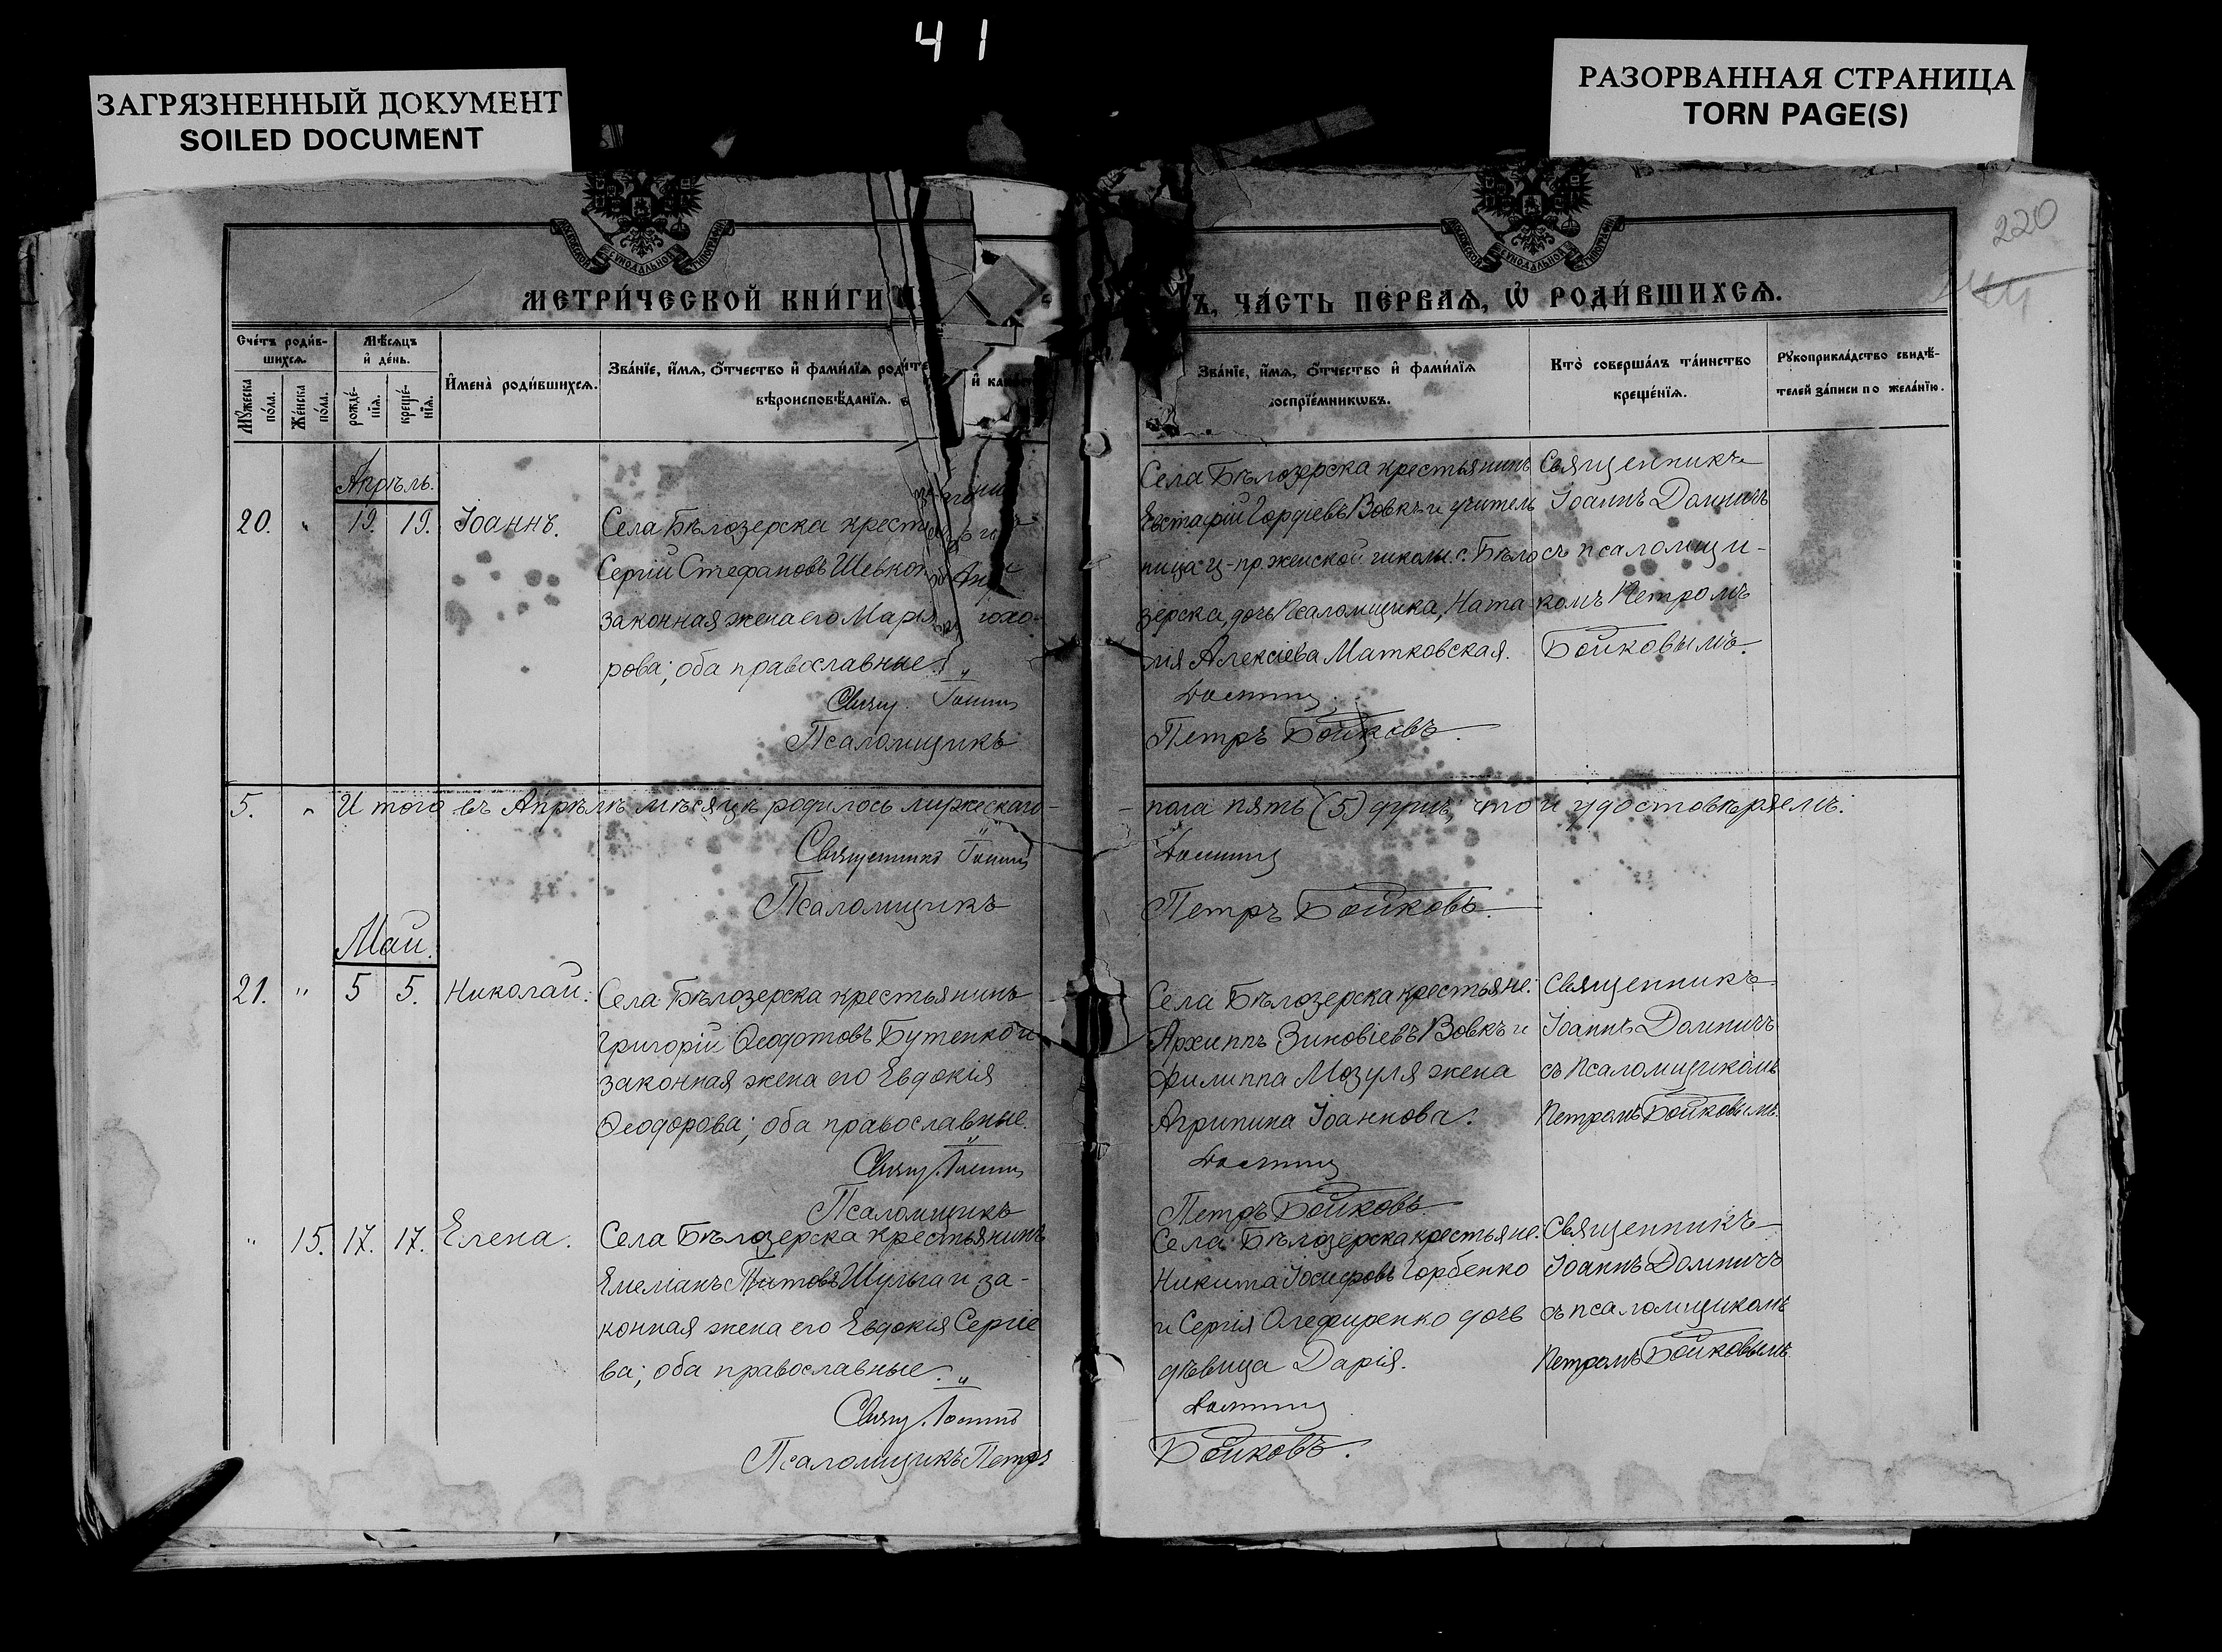 41
ЗАГРЯЗНЕННЫЙ ДОКУМЕНТ
SOILED DOCUMENT
РАЗОРВАННАЯ СТРАНИЦА
TORN PAGE(S)
220
МОСКОВСКОЙ СѴНОДАЛЬНОЙ ТИПОГРАФІИ
МЕТРИ́ЧЕСКОЙ КНИ́ГИ
МОСКОВСКОЙ СѴНОДАЛЬНОЙ ТИПОГРАФІИ
ЧА́СТЬ ПЕ́РВАѦ, Ѽ РОДИ́ВШИХСѦ.
Сче́тъ роди́в-
шихсѧ.
Мѣ́сѧцъ
и҆ де́нь.
Мꙋ́жеска
по́ла.
Же́нска
по́ла.
рожде́-
нїѧ.
креще́-
нїѧ.
И҆мена̀ роди́вшихсѧ.
Зва́нїе, и҆́мѧ, ѻ҆́тчество и҆ фами́лїѧ роди́те
вѣроисповѣ́данїѧ.
Зва́нїе, и҆́мѧ, ѻ҆́тчество и҆ фами́лїѧ
воспрїе́мникѡвъ.
Кто̀ соверша́лъ та́инство
креще́нїѧ.
Рꙋкоприкла́дство свидѣ́-
телей за́писи по жела́нїю.
Апрѣль.
20. " 19. 19. Іоаннъ.
Села Бѣлозерска крест
Сергій Стефановъ Шевкоп
законная жена его Марія
рова; оба православные.
Свящ. Іоаннъ
Псаломщикъ
Села Бѣлозерска крестьянинъ
Евстафій Гордіевъ Вовкъ и учитель
ница ц-пр. женской школы с. Бѣло
зерска, дочь псаломщика, Ната-
лія Алексіева Матковская.
Домничъ
Петръ Бойковъ.
Священникъ
Іоаннъ Домничъ
съ псаломщи-
комъ Петромъ
Бойковымъ.
5. " Итого въ Апрѣлѣ мѣсяцѣ родилось мужескаго
пола пять (5) душъ, что и удостовѣряемъ.
Священникъ Іоаннъ
Домничъ
Псаломщикъ
Петръ Бойковъ.
Май.
21. " 5 5. Николай.
Села Бѣлозерска крестьянинъ
Григорій Ѳеодотовъ Бутенко и
законная жена его Евдокія
Ѳеодорова; оба православные.
Свящ. Іоаннъ
Псаломщикъ
Села Бѣлозерска крестьяне:
Архиппъ Зиновіевъ Вовкъ и
Филиппа Мозуля жена
Агрипина Іоаннова.
Домничъ
Петръ Бойковъ
Священникъ
Іоаннъ Домничъ
съ псаломщикомъ
Петромъ Бойковымъ.
" 15. 17. 17. Елена.
Села Бѣлозерска крестьянинъ
Емеліанъ Титовъ Шульга и за-
конная жена его Евдокія Сергіе
ва; оба православные.
Свящ. Іоаннъ
Псаломщикъ Петръ
Села Бѣлозерска крестьяне:
Никита Іосифовъ Горбенко
и Сергія Олефиренко дочь
дѣвица Дарія.
Домничъ
Бойковъ.
Священникъ
Іоаннъ Домничъ
съ псаломщикомъ
Петромъ Бойковымъ.